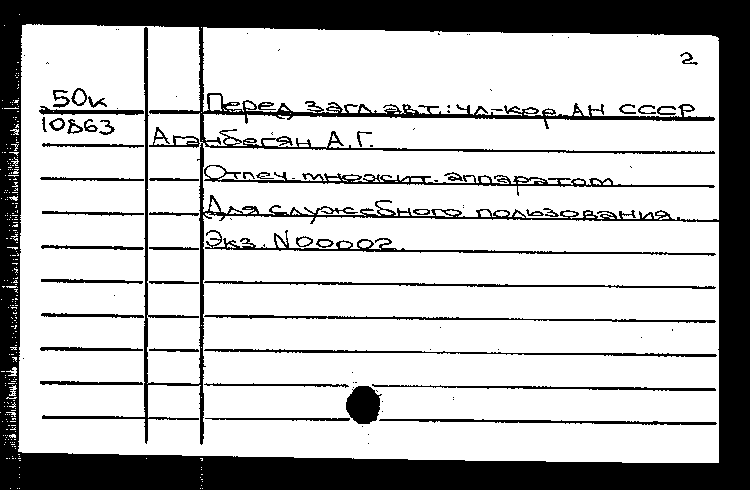 2
50к Перед загл. авт.: чл.-кор. АН СССР
10863
Аганбегян А.Г.
Отпеч. множит. аппаратом.
Для служебного пользования.
Экз. N00002.